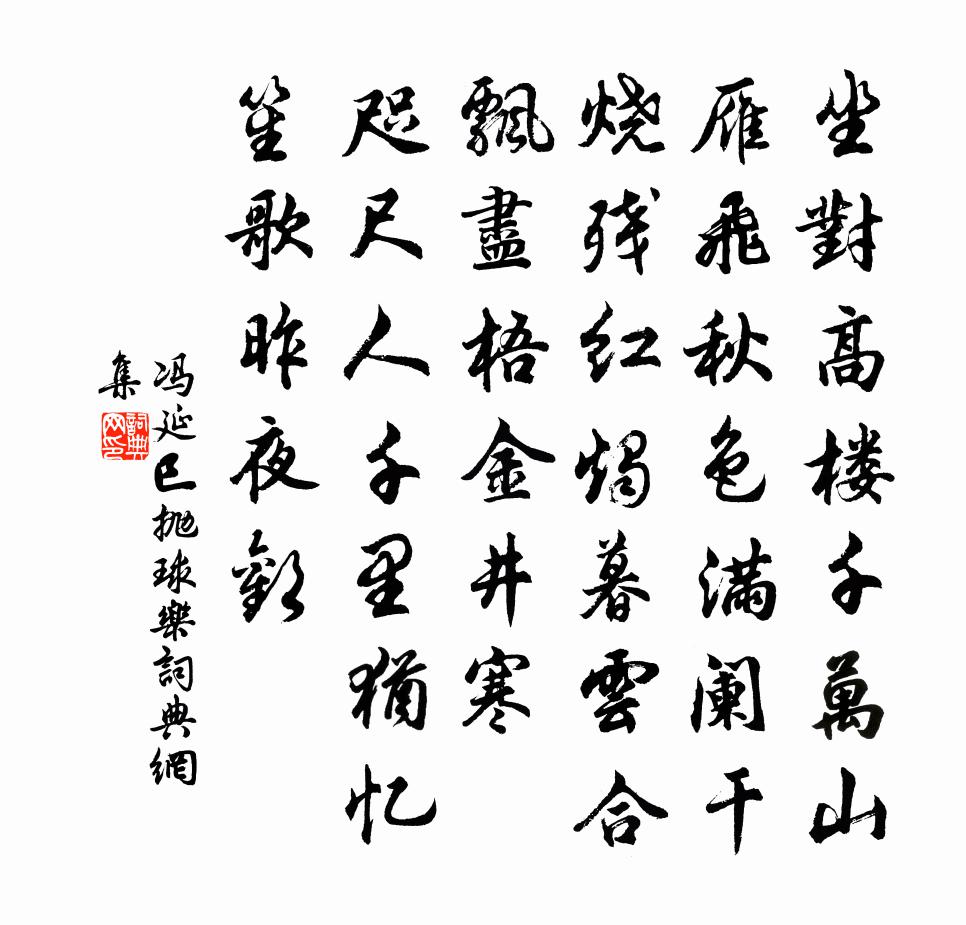 坐對高楼千萬山
雁飛秋色满阑干
燒残红燭暮雲合
飄盡梧金井寒
咫尺人千里猶忆
笙歌昨夜歡
冯延巳抛球樂詞典網
集
詞典网印